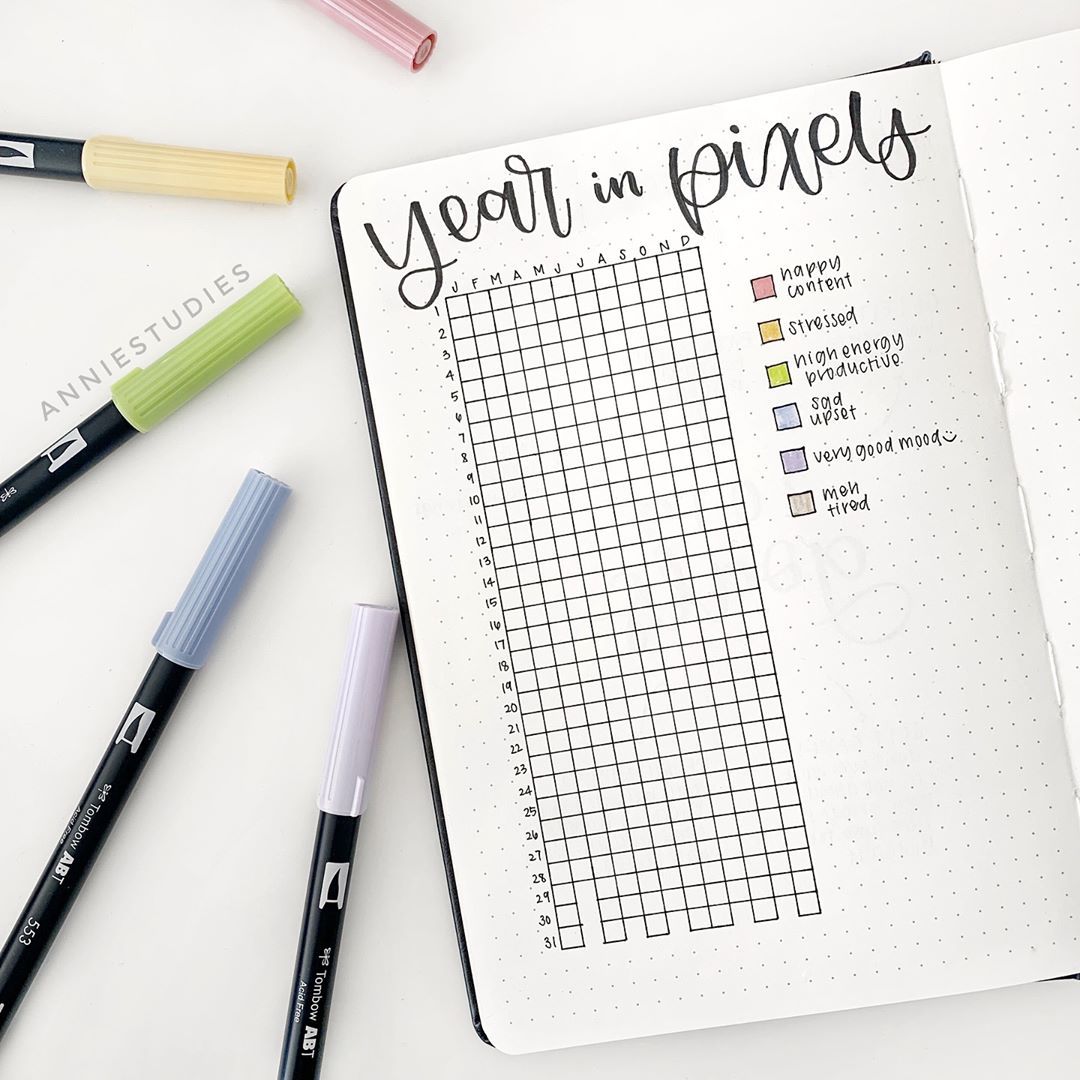 year in pixels
J F M A M J J A S O N D
1
2
3
4
5
6
7
8
9
10
11
12
13
14
15
16
17
18
19
20
21
22
23
24
25
26
27
28
29
30
31
happy
content
stressed
high energy
productive
sad
upset
very good mood
meh
tired
ANNIESTUDIES
Tombow ABT
Acid Free
553
Tombow ABT
Acid Free